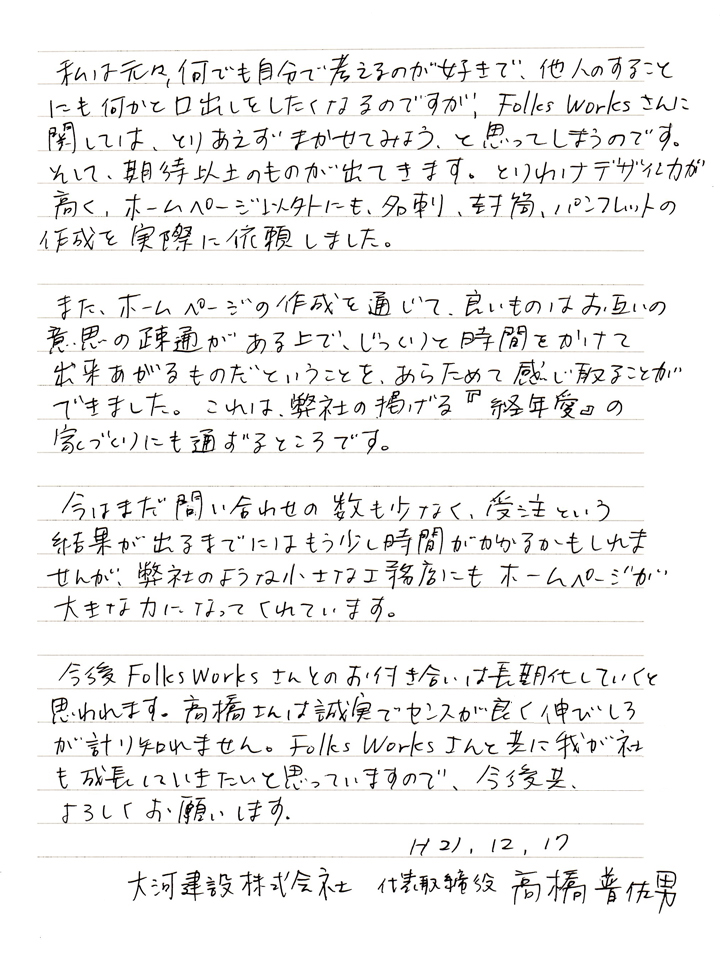 私は元々、何でも自分で考えるのが好きで、他人のすること
にも何かと口出しをしたくなるのですが、Folks Worksさんに
関しては、とりあえずまかせてみよう、と思ってしまうのです。
そして、期待以上のものが出てきます。とりわけデザイン力が
高く、ホームページ以外にも、名刺、封筒、パンフレットの
作成を実際に依頼しました。
また、ホームページの作成を通じて、良いものはお互いの
意思の疎通がある上で、じっくりと時間をかけて
出来あがるものだということを、あらためて感じ取ることが
できました。これは、弊社の掲げる『経年愛』の
家づくりにも通ずるところです。
今はまだ問い合わせの数も少なく、受注という
結果が出るまでにはもう少し時間がかかるかもしれま
せんが、弊社のような小さな工務店にもホームページが
大きな力になってくれています。
今後Folks Worksさんとのお付き合いは長期化していくと
思われます。高橋さんは誠実でセンスが良く伸びしろ
が計り知れません。Folks Worksさんと共に我が社
も成長していきたいと思っていますので、今後共、
よろしくお願いします。
H21.12.17
大河建設株式会社 代表取締役 高橋普佐男